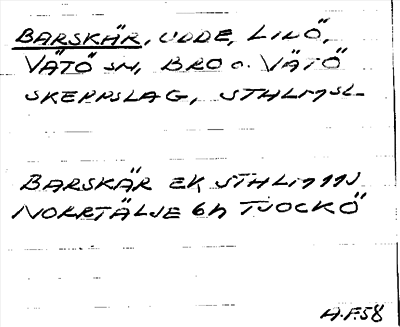 BARSKÄR, UDDE, LIDÖ,
VÄTÖ SN, BRO O. VÄTÖ
SKEPPSLAG, STHLMSL-
BARSKÄR EK STHLM
NORRTÄLJE 6h TJOCKÖ
A.F.58